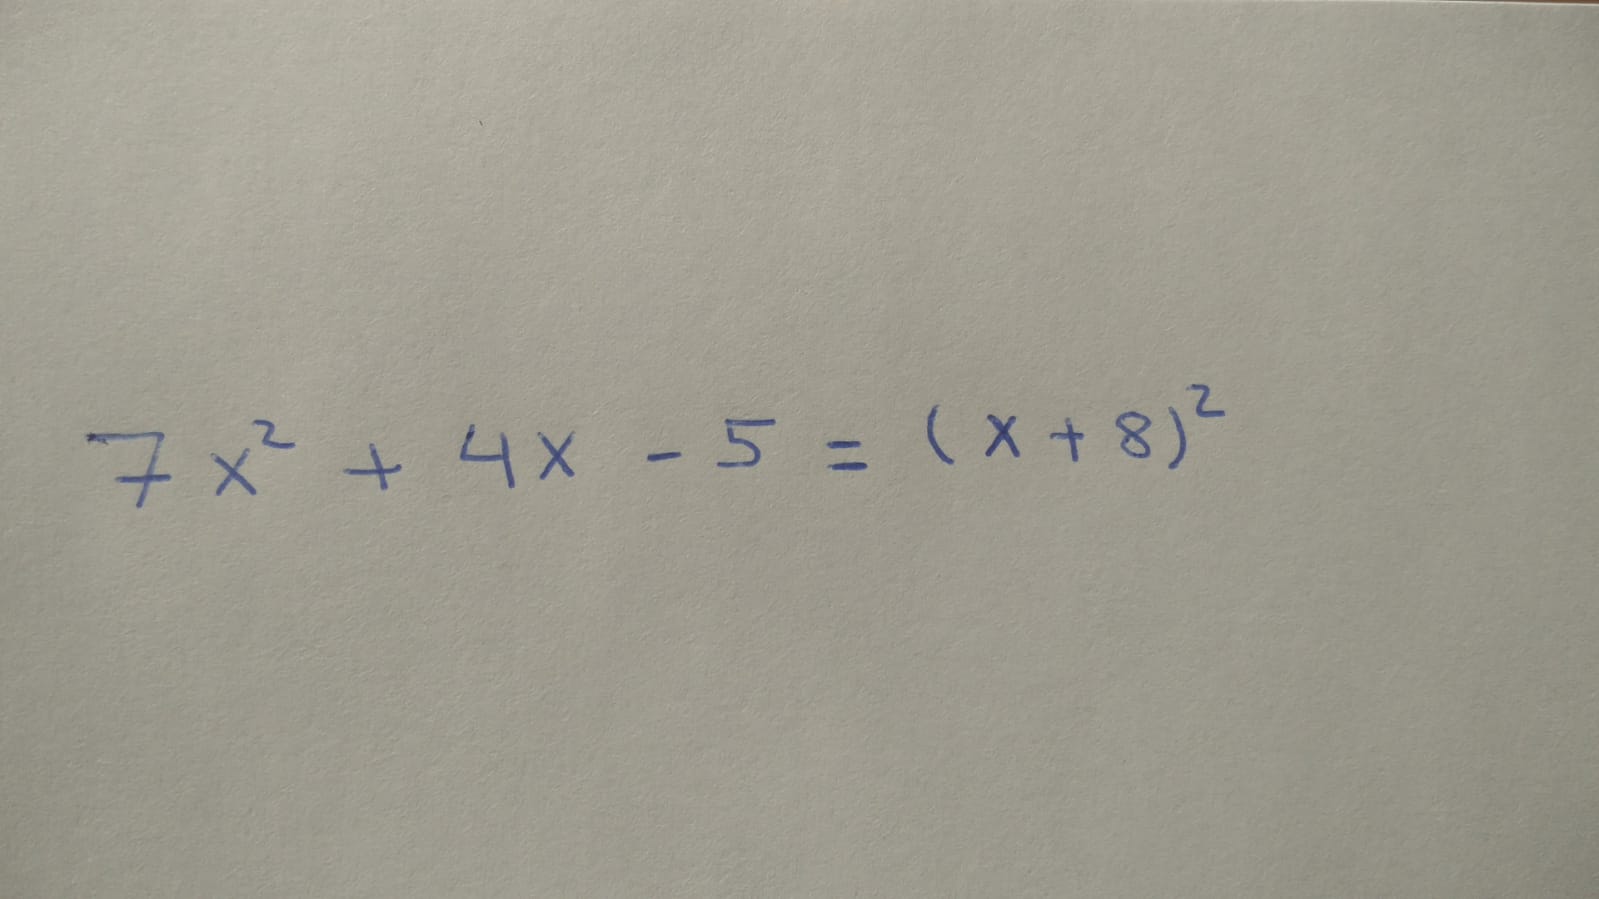 7x² + 4x - 5 = (x + 8)²